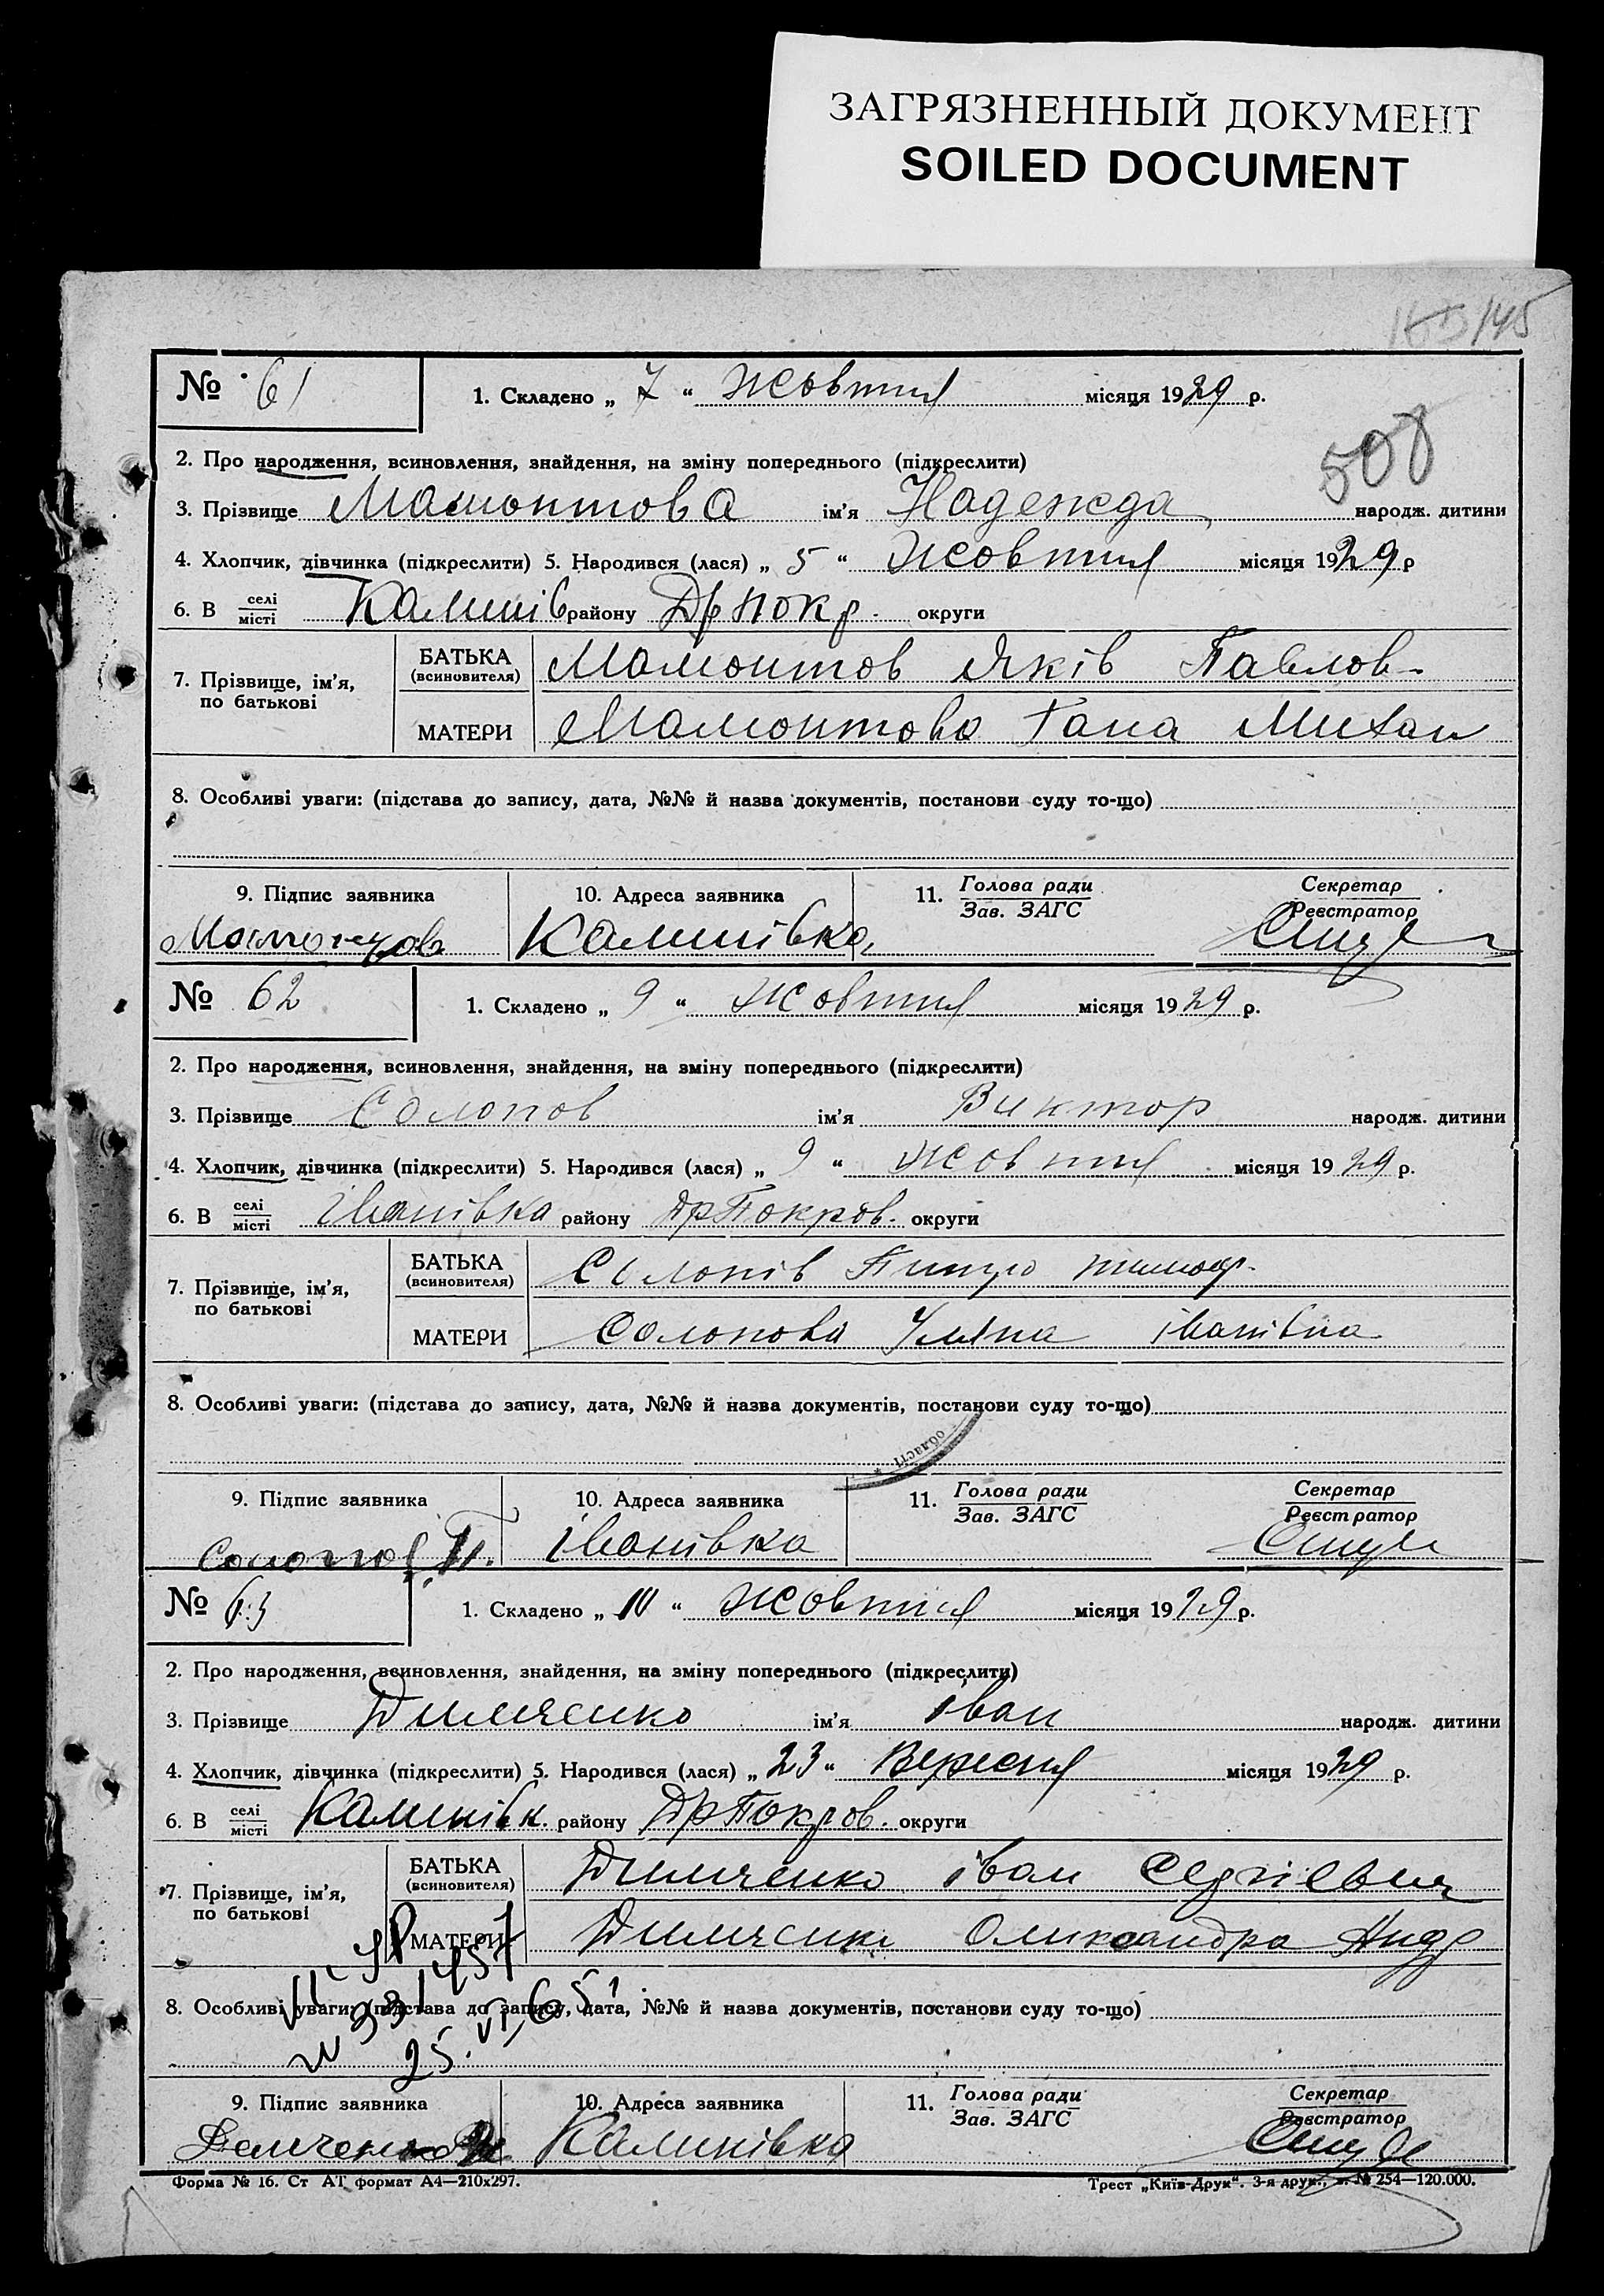 ЗАГРЯЗНЕННЫЙ ДОКУМЕНТ
SOILED DOCUMENT
/45
№ 61
1. Складено „ 7 “ Жовтня місяця 1929 р.
508
2. Про народження, всиновлення, знайдення, на зміну попереднього (підкреслити)
3. Прізвище Мамонтова ім'я Надежда народж. дитини
4. Хлопчик, дівчинка (підкреслити) 5. Народився (лася) „ 5 “ Жовтня місяця 1929 р
6. В селі/місті Калинів району Др покр. округи
7. Прізвище, ім'я, по батькові
БАТЬКА (всиновителя) Мамонтов Яків Павлов-
МАТЕРИ Мамонтова Гана Михаи
8. Особливі уваги: (підстава до запису, дата, №№ й назва документів, постанови суду то-що)
9. Підпис заявника 10. Адреса заявника 11. Голова ради / Зав. ЗАГС Секретар / Реєстратор
Мамонтов Калинівка
№ 62
1. Складено „ 9 “ Жовтня місяця 1929 р.
2. Про народження, всиновлення, знайдення, на зміну попереднього (підкреслити)
3. Прізвище Солопов ім'я Виктор народж. дитини
4. Хлопчик, дівчинка (підкреслити) 5. Народився (лася) „ 9 “ Жовтня місяця 1929 р.
6. В селі/місті іванівка району Др Покров. округи
7. Прізвище, ім'я, по батькові
БАТЬКА (всиновителя) Солопів
МАТЕРИ Солопова Уляна іванівна
8. Особливі уваги: (підстава до запису, дата, №№ й назва документів, постанови суду то-що)
області *
9. Підпис заявника 10. Адреса заявника 11. Голова ради / Зав. ЗАГС Секретар / Реєстратор
Солопов П. іванівка
№ 63
1. Складено „ 10 “ Жовтня місяця 1929 р.
2. Про народження, всиновлення, знайдення, на зміну попереднього (підкреслити)
3. Прізвище Димченко ім'я іван народж. дитини
4. Хлопчик, дівчинка (підкреслити) 5. Народився (лася) „ 23 “ Вересня місяця 1929 р.
6. В селі/місті Калинівк. району Др Покров. округи
7. Прізвище, ім'я, по батькові
БАТЬКА (всиновителя) Димченко іван Сергієвич
МАТЕРИ Димченк Олександра
8. Особливі уваги: (підстава до запису, дата, №№ й назва документів, постанови суду то-що)
9. Підпис заявника 10. Адреса заявника 11. Голова ради / Зав. ЗАГС Секретар / Реєстратор
Демченко Калинівка
Форма № 16. Ст АТ формат А4—210х297.
Трест „Київ-Друк“. 3-я друк., з. № 254—120.000.